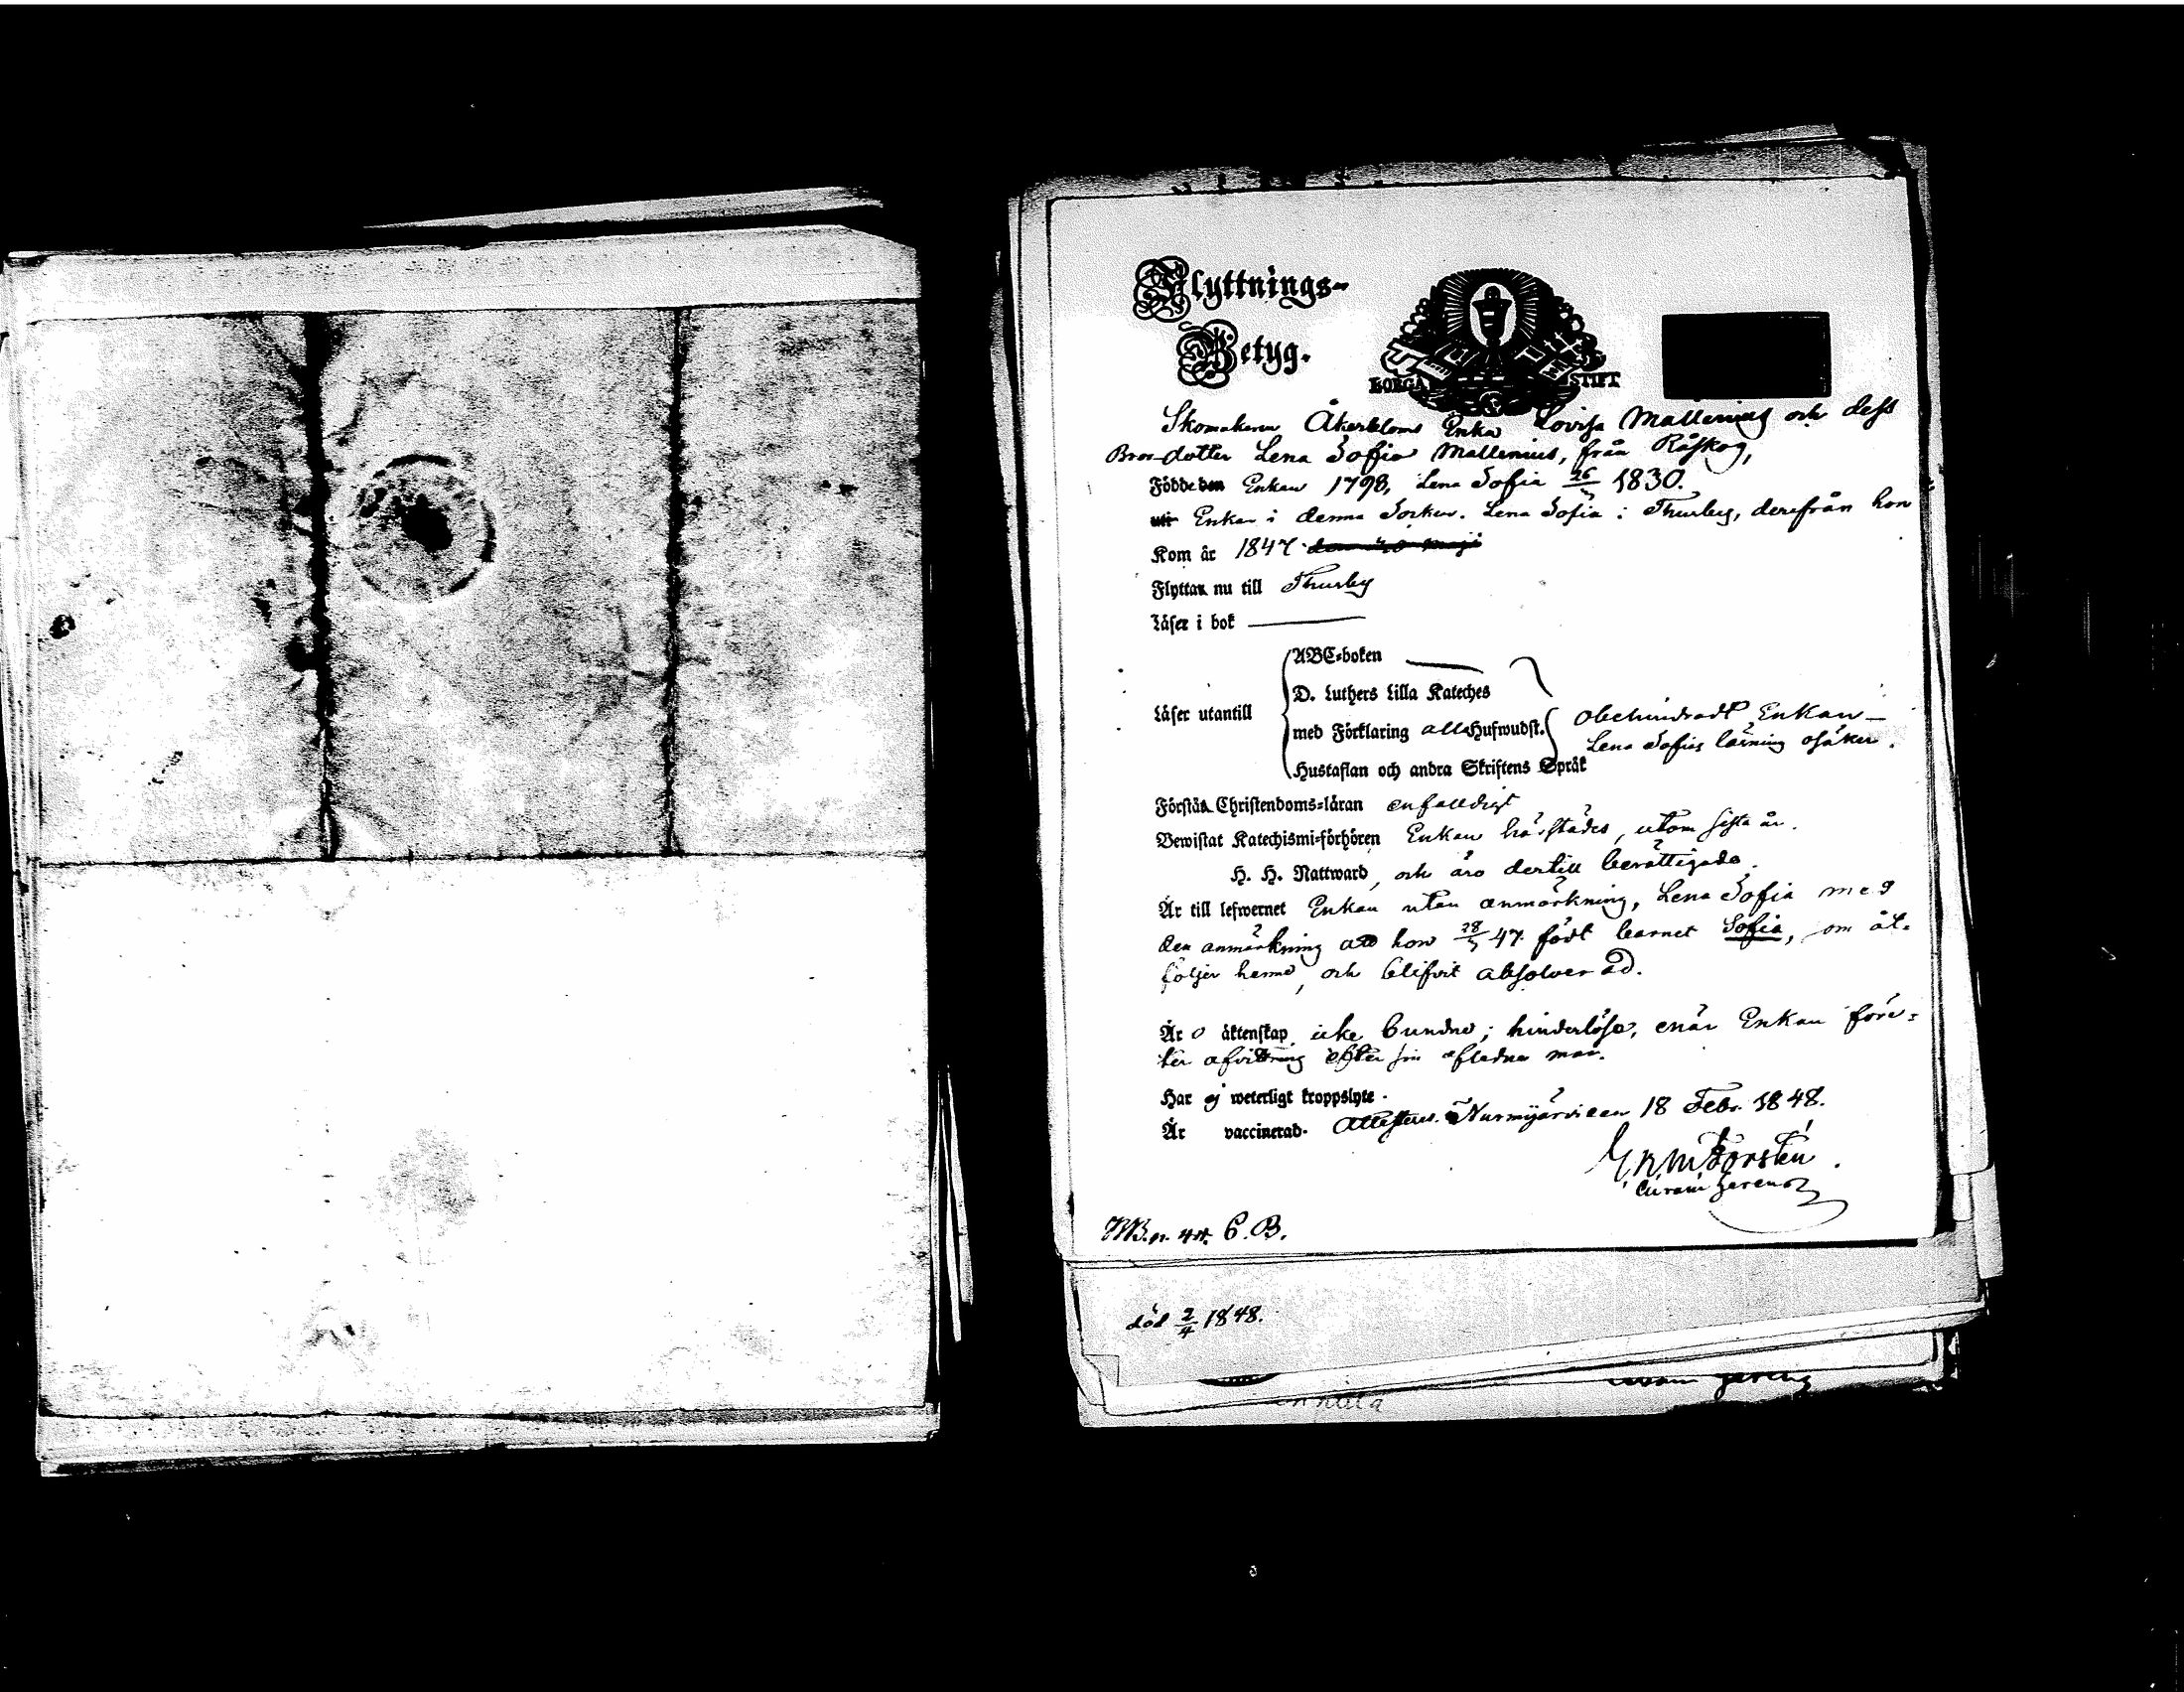 Flyttnings-
Betyg.
BORGÅ STIFT
Skomakaren Åkerbloms Enka Lovisa Mallenius och dess
Brorsdotter Lena Sofia Mallenius, från Röskog,
Födde den Enkan 1798, Lena Sofia 26/5 1830.
uti Enkan i denna Socken. Lena Sofia i Thusby, derifrån hon
Kom år 1847
Flytta nu till Thusby
Läser i bok
ABC-boken
D. Luthers Lilla Kateches
Läser utantill
med Förklaring alla Hufwudst. obehindradt Enkan –
Lena Sofias läsning osäker.
Hustaflan och andra Skriftens Språk
Förstå Christendoms-läran enfaldigt
Bewistat Katechismi-förhören Enkan härstädes, utom sista år.
H. H. Nattward, och äro dertill berättigade.
Är till lefwernet Enkan utan anmärkning, Lena Sofia med
den anmärkning att hon 28/5 47 födt barnet Sofia, som åt-
följer henne, och blifvit absolverad.
Är o äktenskap icke bundne; hinderlösa, enär Enkan före-
ter afvittring efter sin aflidna man.
Har ej weterligt kroppslyte.
Är vaccinerad. Attesteras. Nurmijärvi den 18 Febr. 1848.
Forstén
Curam gerens
M.B. n. 44. C.B.
död 2/4 1848.